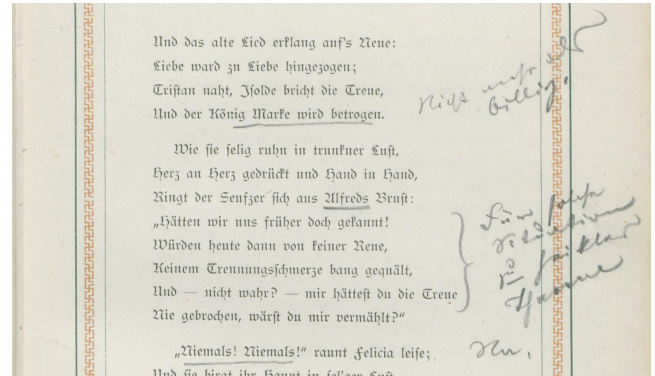 Und das alte Lied erklang auf's Neue:
Liebe ward zu Liebe hingezogen;
Tristan naht, Isolde bricht die Treue,
Und der König Marke wird betrogen.
Nicht mehr als
billig.
Wie sie selig ruhn in trunkner Lust,
Herz an Herz gedrückt und Hand in Hand,
Ringt der Seufzer sich aus Alfreds Brust:
„Hätten wir uns früher doch gekannt!
Würden heute dann von keiner Reue,
Keinem Trennungsschmerze bang gequält,
Und — nicht wahr? — mir hättest du die Treue
Nie gebrochen, wärst du mir vermählt?“
Für solche
Situation
„Niemals! Niemals!“ raunt Felicia leise;
Und sie birgt ihr Haupt in sel'ger Lust